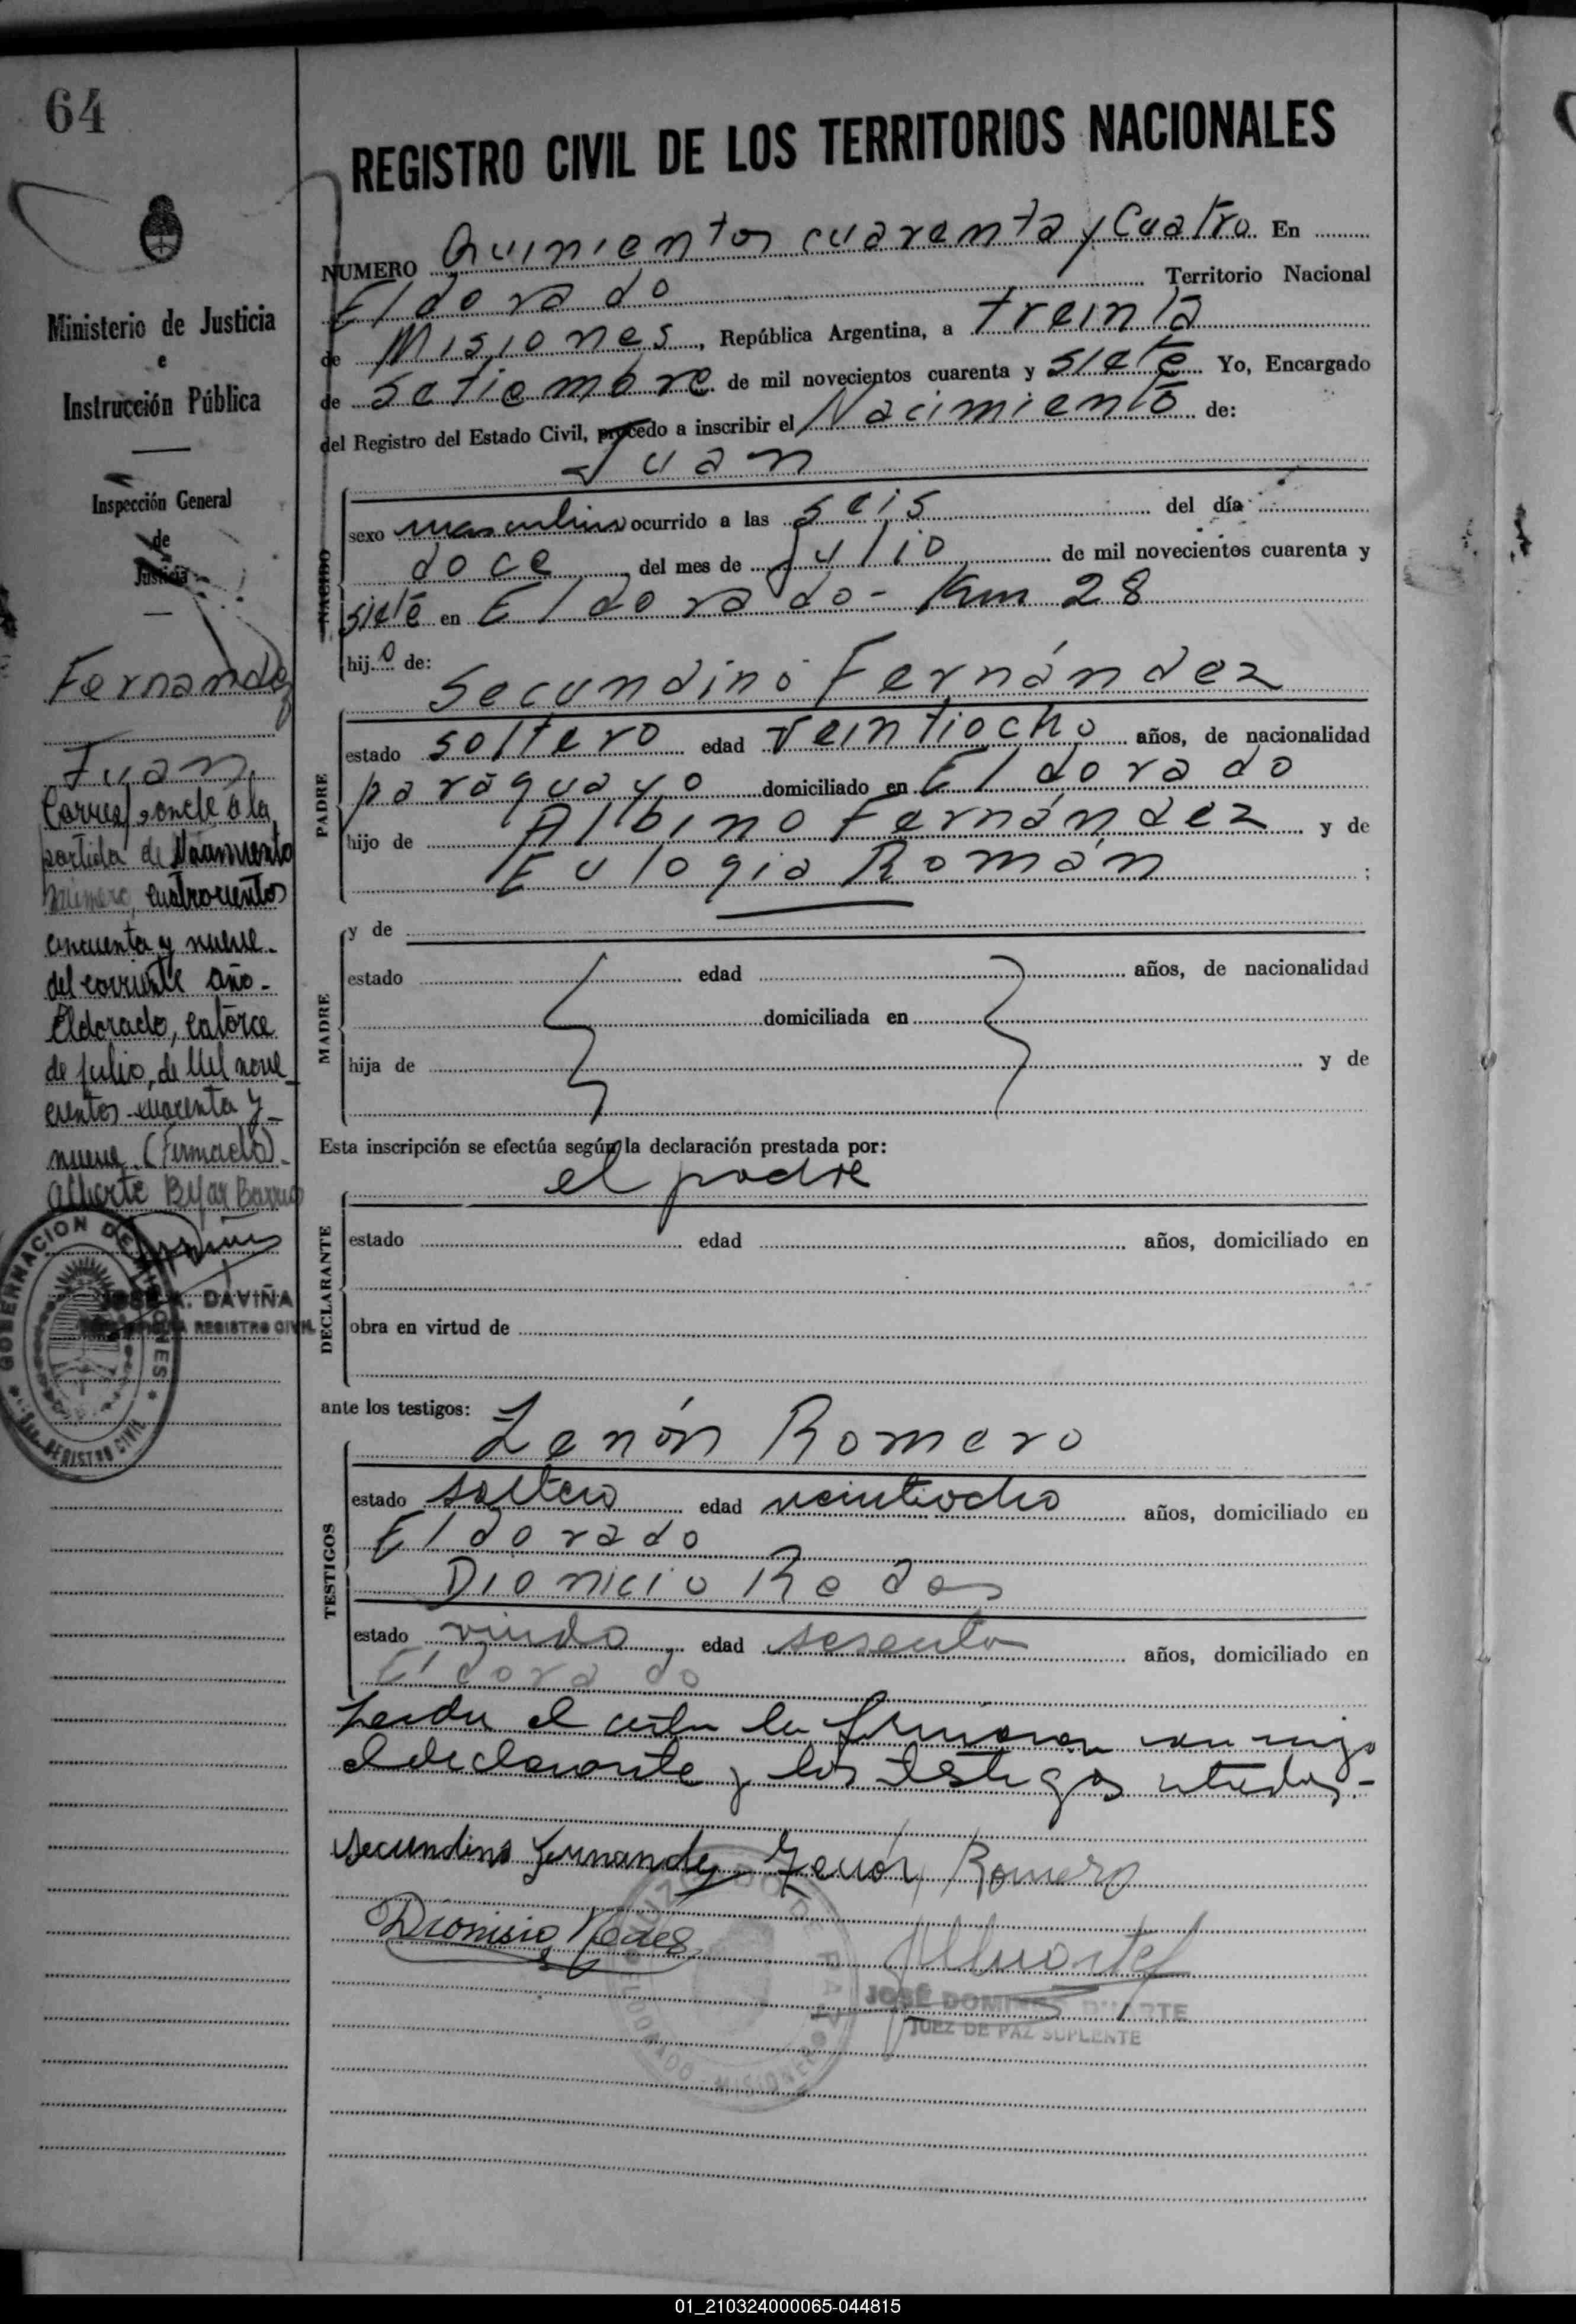 64
Ministerio de Justicia
e
Instrucción Pública
Inspección General
de
Justicia
Fernandez
Juan
Corresponde a la
partida de Nacimiento
número, cuatrocientos
cincuenta y nueve
del corriente año -
Eldorado, catorce
de julio, de Mil nove
cientos cuarenta y
nueve. (Firmado) -
Alberto Barrio
GOBERNACION DE MISIONES
REGISTRO CIVIL
JOSE A. DAVIÑA
REGISTRO CIVIL
REGISTRO CIVIL DE LOS TERRITORIOS NACIONALES
NUMERO Quinientos cuarenta y Cuatro En
Eldorado Territorio Nacional
de Misiones, República Argentina, a treinta
de Setiembre de mil novecientos cuarenta y siete Yo, Encargado
del Registro del Estado Civil, procedo a inscribir el Nacimiento de:
Juan
NACIDO
sexo masculino ocurrido a las seis del día
doce del mes de Julio de mil novecientos cuarenta y
siete en Eldorado - Km 28
hijo de:
Secundino Fernández
PADRE
estado soltero edad veintiocho años, de nacionalidad
paraguayo domiciliado en Eldorado
hijo de Albino Fernández y de
Eulogia Román ;
y de
MADRE
estado edad años, de nacionalidad
domiciliada en
hija de y de
Esta inscripción se efectúa según la declaración prestada por:
el padre
DECLARANTE
estado edad años, domiciliado en
obra en virtud de
ante los testigos:
Zenón Romero
TESTIGOS
estado soltero edad veintiocho años, domiciliado en
Eldorado
Dionicio Rodas
estado viudo edad sesenta años, domiciliado en
Eldorado
Leida el acta la firmaron conmigo
el declarante y los testigos citados -
Secundino Fernandez Zenón Romero
Dionisio Rodas
JOSÉ DOMINGO DUARTE
JUEZ DE PAZ SUPLENTE
JUZGADO DE PAZ
ELDORADO - MISIONES
01_210324000065-044815